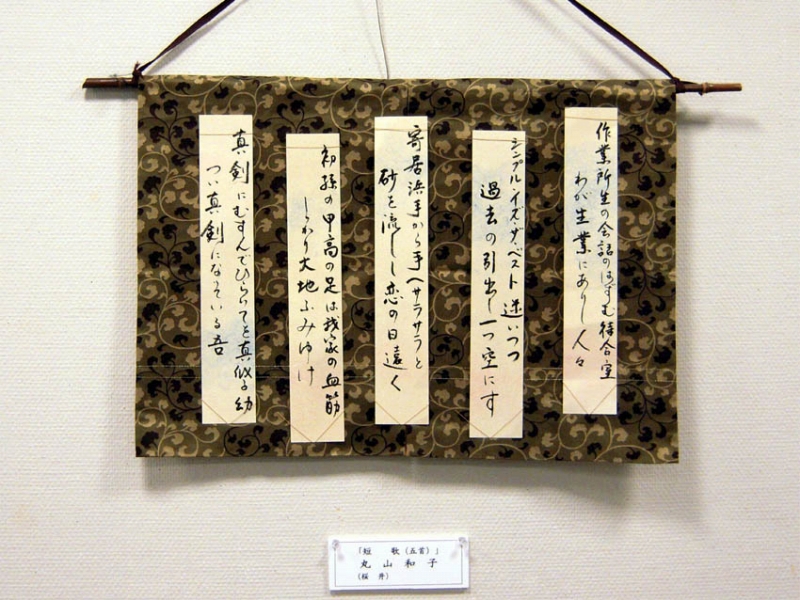 作業所生の会話のはずむ待合室
わが生業にありし人々
シンプル・イズ・ザ・ベスト迷いつつ
過去の引出し一つ空にす
寄居浜手から手へサラサラと
砂を流しし恋の日遠く
初孫の甲高の足は我家の血筋
しかり大地ふみゆけ
真剣にむすんでひらいてを真似る幼
つい真剣になっている吾
「短 歌(五首)」
丸山和子
(桜井)